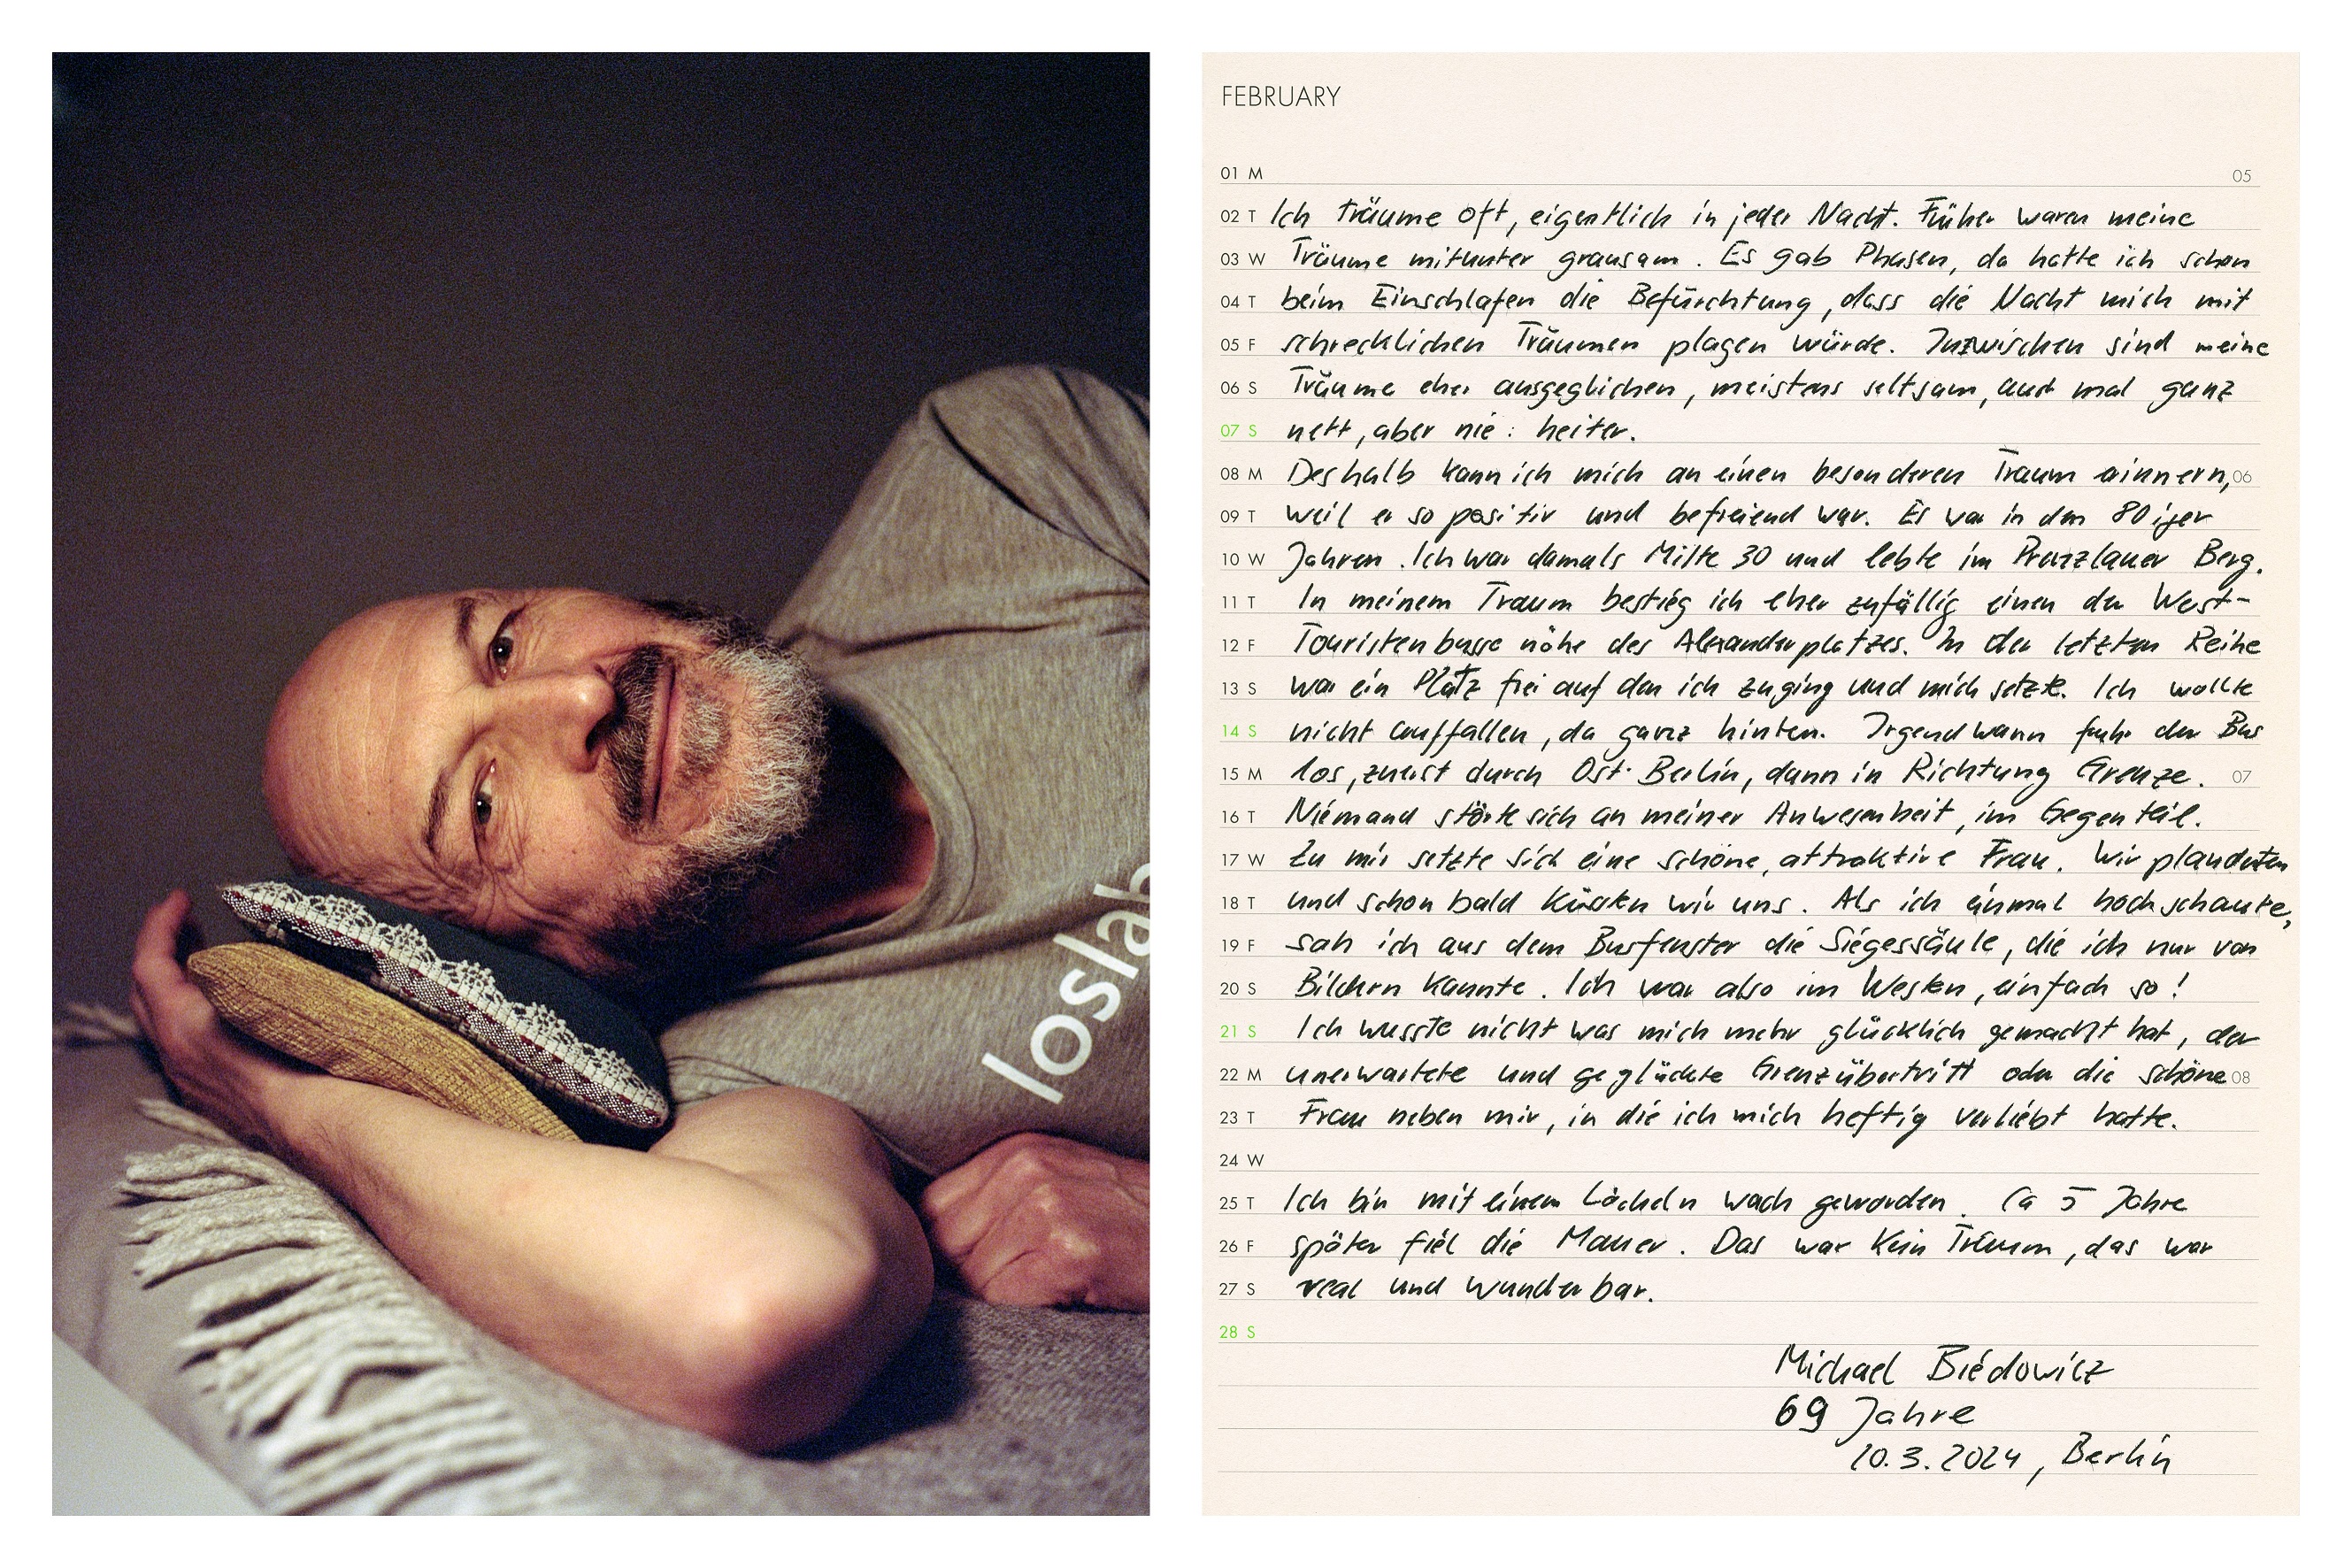 loslab
FEBRUARY
01 M 05
02 T Ich träume oft, eigentlich in jeder Nacht. Früher waren meine
03 W Träume mitunter grausam. Es gab Phasen, da hatte ich schon
04 T beim Einschlafen die Befürchtung, dass die Nacht mich mit
05 F schrecklichen Träumen plagen würde. Inzwischen sind meine
06 S Träume eher ausgeglichen, meistens seltsam, auch mal ganz
07 S nett, aber nie: heiter.
08 M Deshalb kann ich mich an einen besonderen Traum erinnern, 06
09 T weil er so positiv und befreiend war. Es war in den 80iger
10 W Jahren. Ich war damals Mitte 30 und lebte im Prenzlauer Berg.
11 T In meinem Traum bestieg ich eher zufällig einen der West-
12 F Touristenbusse nähe des Alexanderplatzes. In der letzten Reihe
13 S war ein Platz frei auf den ich zuging und mich setzte. Ich wollte
14 S nicht auffallen, da ganz hinten. Irgendwann fuhr der Bus
15 M los, zuerst durch Ost-Berlin, dann in Richtung Grenze. 07
16 T Niemand störte sich an meiner Anwesenheit, im Gegenteil.
17 W Zu mir setzte sich eine schöne, attraktive Frau. Wir plauderten
18 T und schon bald küssten wir uns. Als ich einmal hochschaute,
19 F sah ich aus dem Busfenster die Siegessäule, die ich nur von
20 S Bildern kannte. Ich war also im Westen, einfach so!
21 S Ich wusste nicht was mich mehr glücklich gemacht hat, der
22 M unerwartete und geglückte Grenzübertritt oder die schöne 08
23 T Frau neben mir, in die ich mich heftig verliebt hatte.
24 W
25 T Ich bin mit einem Lächeln wach geworden. Ca 5 Jahre
26 F später fiel die Mauer. Das war kein Traum, das war
27 S real und wunderbar.
28 S
Michael Biedowicz
69 Jahre
10.3.2024, Berlin